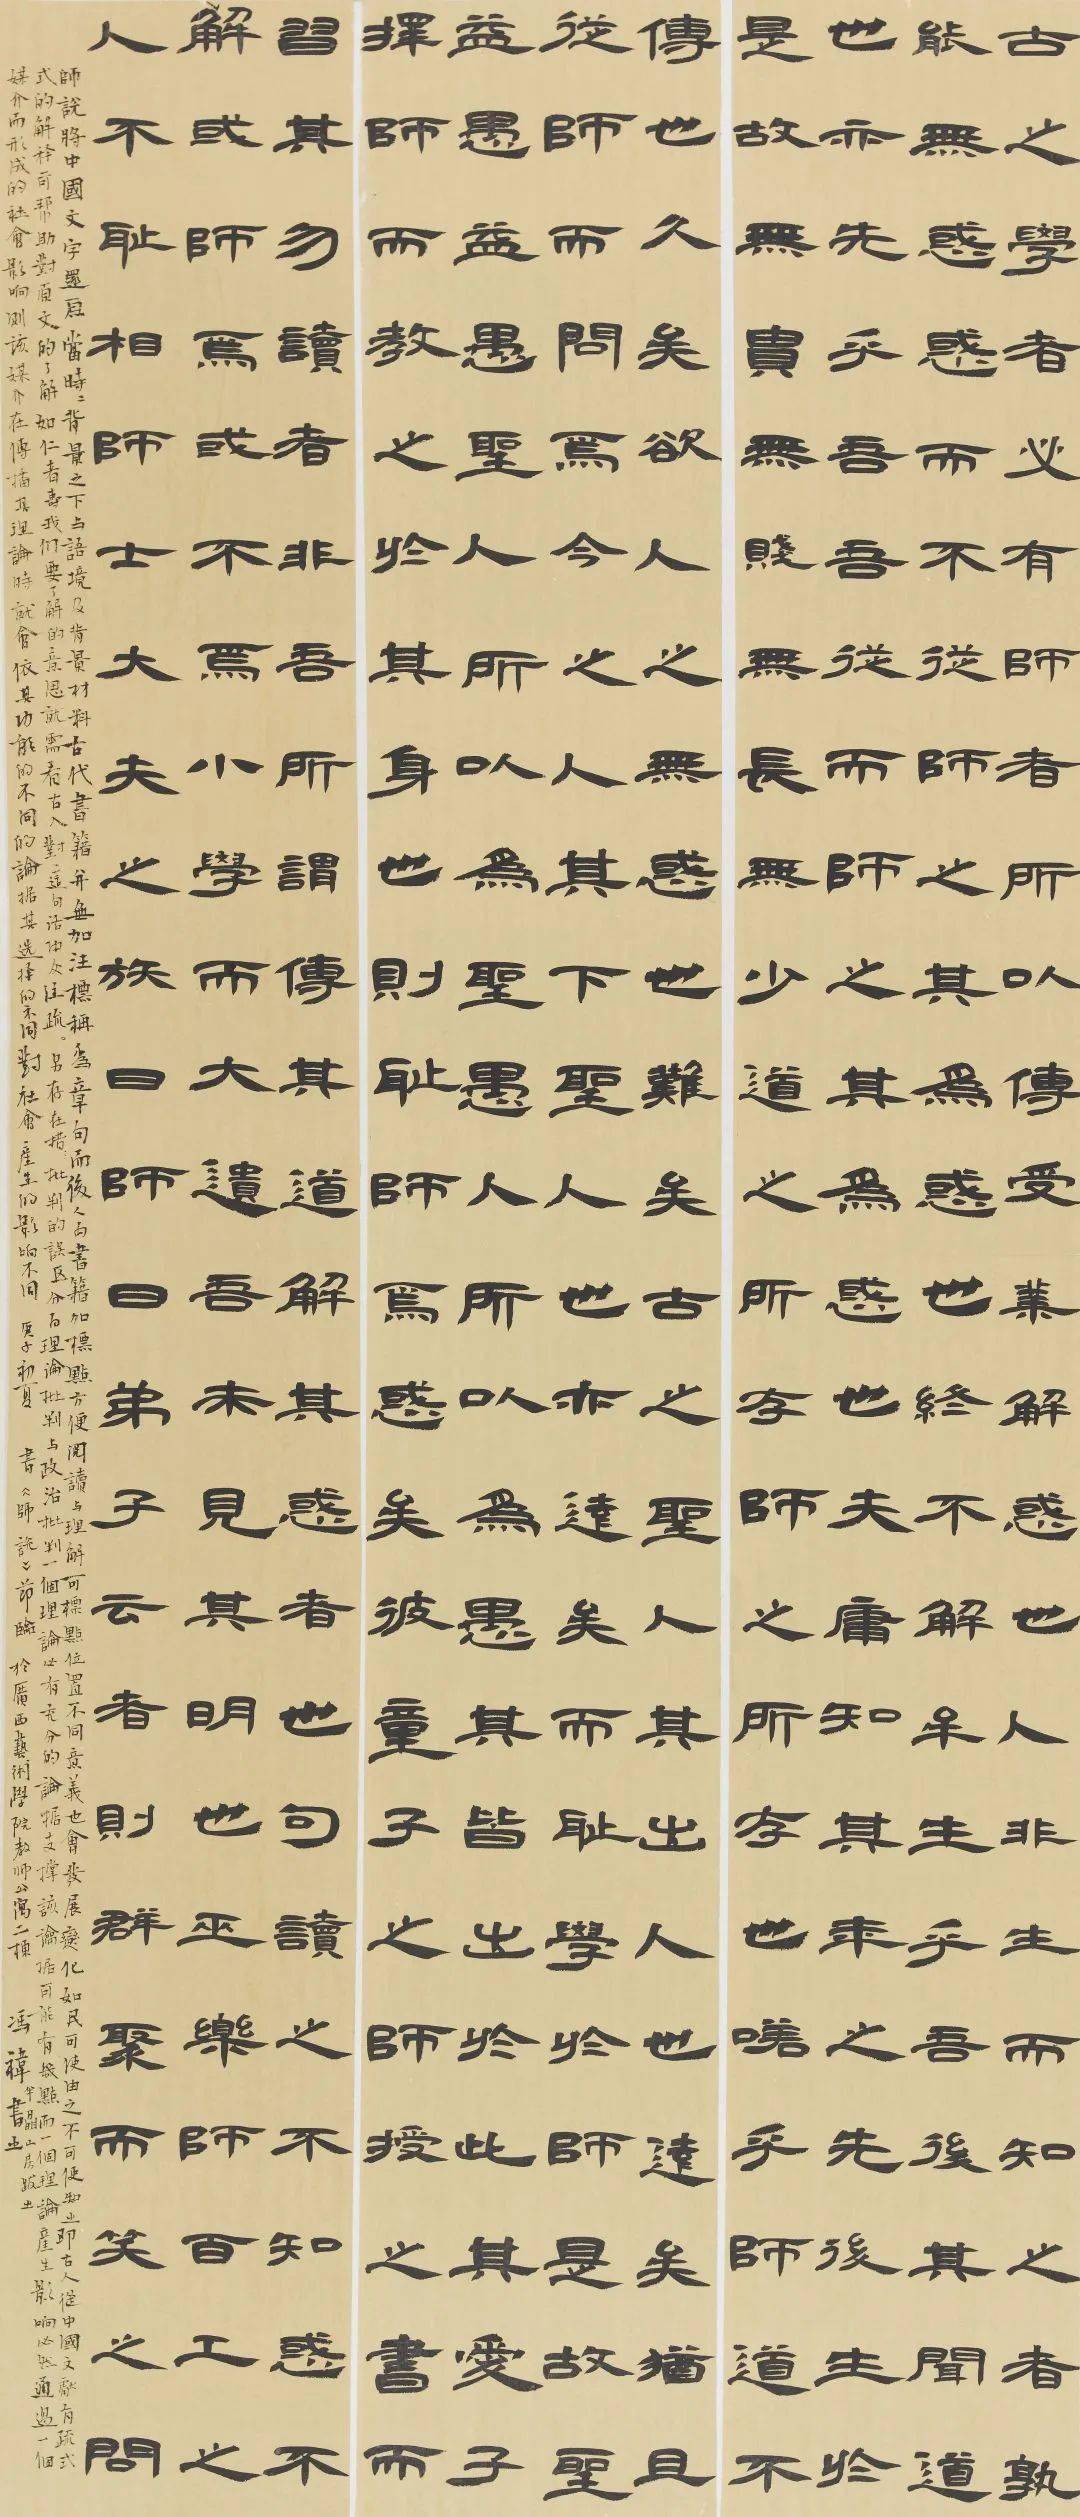 古之學者必有師者所以傳受業解惑也人非生而知之者孰
能無惑惑而不從師之其為惑也終不解牟生乎吾後其聞道
也亦先乎吾吾從而師之其為惑也夫庸知其年之先後生於
是故無貴無賤無長無少道之所存師之所存也嗟乎師道不
傳也久矣欲人之無惑也難矣古之聖人其出人也遠矣猶且
從師而問焉今之人其下聖人也亦遠矣而恥學於師是故聖
益愚益愚聖人所以為聖愚人所以為愚其皆出於此其愛子
擇師而教之於其身也則恥師焉惑矣彼童子之師授之書而
習其勿讀者非吾所謂傳其道解其惑者也句讀之不知惑不
解或師焉或不焉小學而大遺吾未見其明也巫樂師百工之
人不恥相師士大夫之族曰師曰弟子云者則群聚而笑之問
師說將中國文字置當時之背景之下与語境及背景材料古代書籍并無加注標稱為章句而後人為書籍加標點方便閱讀与理解可標點位置不同意義也會發展變化如民可使由之不可使知之即古人從中國文獻有疏式
式的解释可帮助對原文的了解如仁者壽我们要了解的意思就需看古人對這句話注疏。另存在批判的誤区分百理論批判与政治批判一個理論必有充分的論据支撑該論据可能有幾點而一個理論產生影响必然通過一個
媒介而形成的社會影响则該媒介在傳播其理論時就會依其功能的不同的論据其选择的不同對社會產生的影响不同 庚子初夏 書《師說》節臨 於廣西藝術學院教师公寓二棟 馮 書